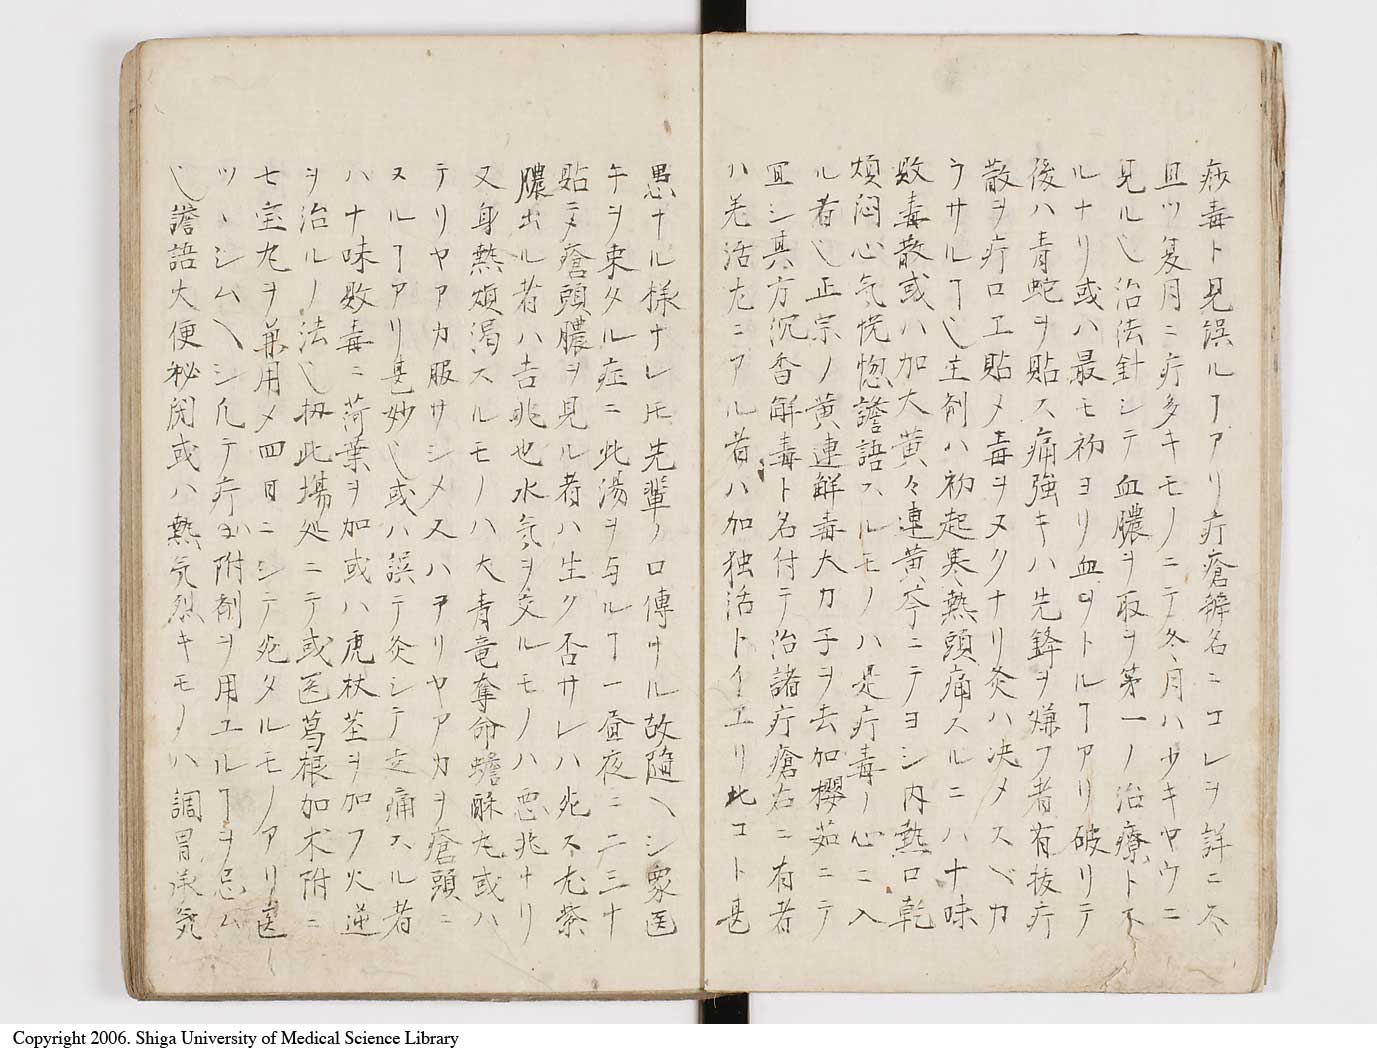 病毒ト見誤ルヿアリ疔瘡辨名ニコレヲ詳ニス
且ツ夏月ニ疔多キモノニテ冬月ハ少キヤウニ
見ル乀治法針シテ血膿ヲ取ヲ第一ノ治療トス
ルナリ或ハ最モ初ヨリ血ヲトルヿアリ破リテ
後ハ青蛇ヲ貼ス痛強キハ先鋒ヲ嫌フ者有抜疔
散ヲ疔口エ貼メ毒ヲヌクナリ灸ハ决メスベカ
ラサルヿ乀主剤ハ初起寒熱頭痛スルニハ十味
敗毒散或ハ加大黄々連黄芩ニテヨシ内熱口乾
煩悶心気恍惚譫語スルモノハ是疔毒ノ心ニ入
ル者乀正宗ノ黄連解毒大力子ヲ去加櫻茹ニテ
冝シ其方沉香解毒ト名付テ治諸疔瘡右ニ有者
ハ羗活左ニアル者ハ加独活トイエリ此コト甚
愚ナル様ナレ𪜈先輩ノ口傳ナル故隨ヘシ衆医
午ヲ束タル症ニ此湯ヲ与ルヿ一昼夜ニ二三十
貼ニメ瘡頭膿ヲ見ル者ハ生ク否サレハ死ス尤紫
膿出ル者ハ吉兆也水気ヲ交ルモノハ悪兆ナリ
又身熱煩渇スルモノハ大青竜奪命蟾酥丸或ハ
テリヤアカ服サシメ又ハテリヤアカヲ瘡頭ニ
ヌルヿアリ甚妙乀或ハ誤テ灸シテ走痛スル者
ハ十味敗毒ニ荷葉ヲ加或ハ虎杖茎ヲ加フ火逆
ヲ治ルノ法乀扨此場処ニテ或医葛根加朮附ニ
七宝丸ヲ兼用メ四日ニシテ死タルモノアリ医
ツヽシムヘシ凡テ疔ニハ附剤ヲ用ユルヿヲ忌ム
乀譫語大便秘閉或ハ熱気烈キモノハ調胃承気
Copyright 2006. Shiga University of Medical Science Library